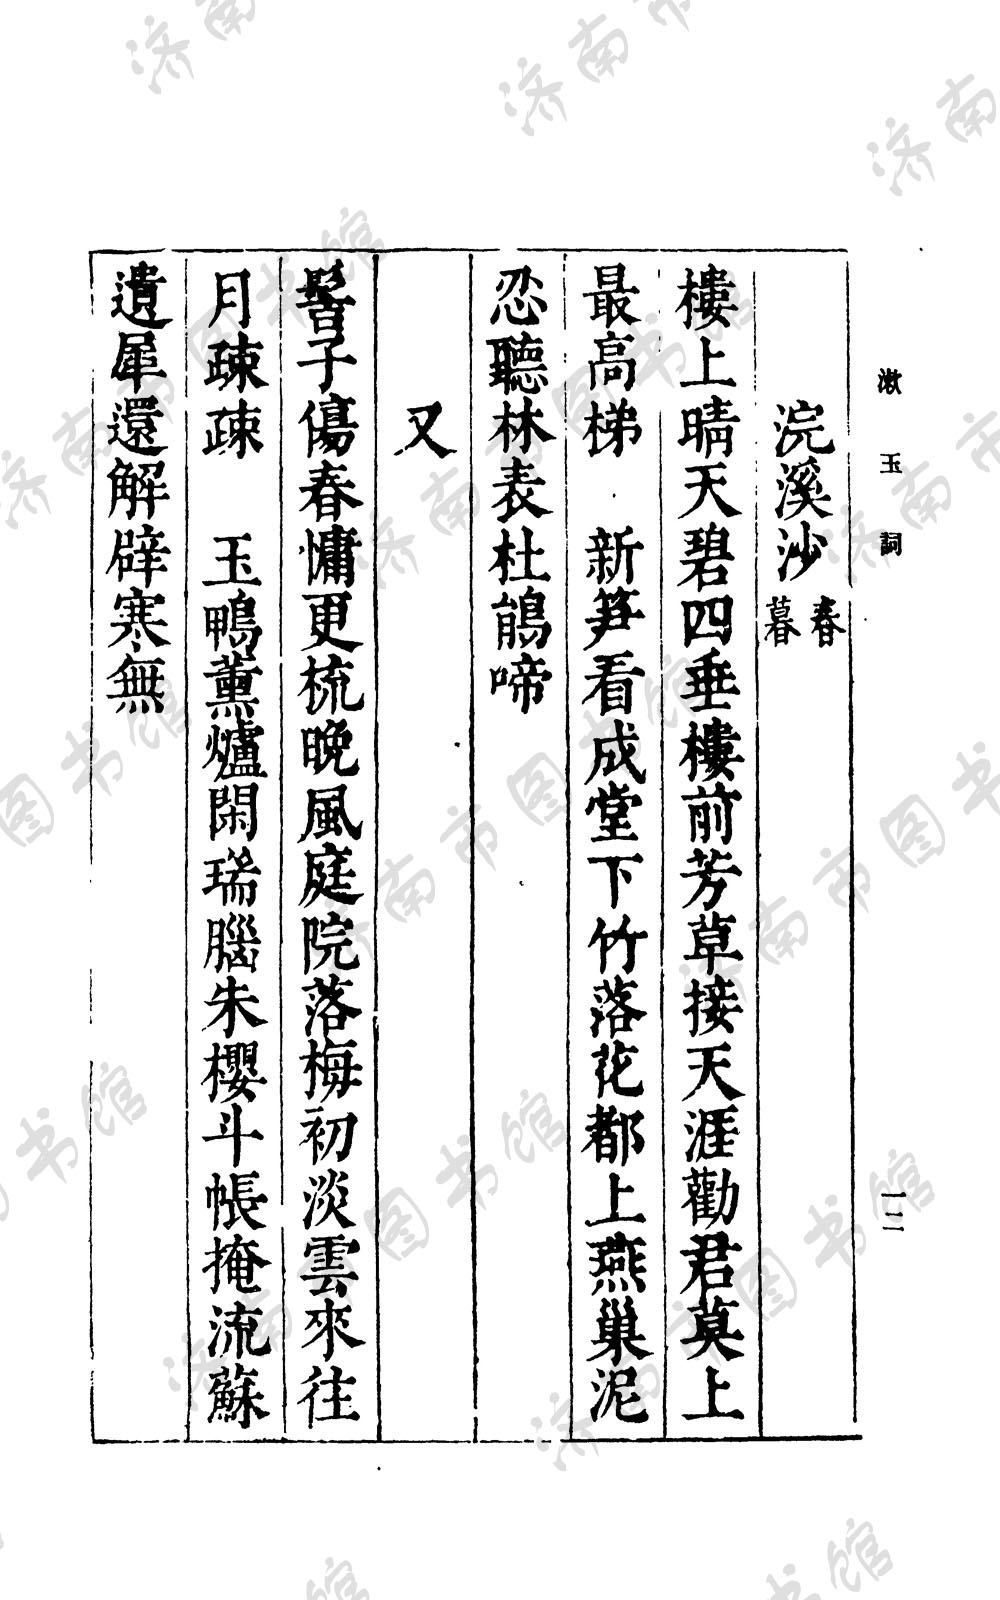 漱玉詞
一二
浣溪沙 春暮
樓上晴天碧四垂樓前芳草接天涯勸君莫上
最高梯　新笋看成堂下竹落花都上燕巢泥
忍聽林表杜鵑啼
又
髻子傷春慵更梳晚風庭院落梅初淡雲來往
月疎疎　玉鴨薰爐閑瑞腦朱櫻斗帳掩流蘇
遺犀還解辟寒無
济南市图书馆